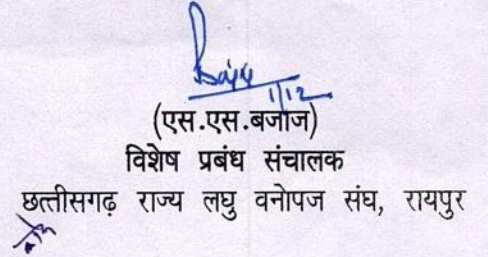 1/12
(एस.एस.बजाज)
विशेष प्रबंध संचालक
छत्तीसगढ़ राज्य लघु वनोपज संघ, रायपुर